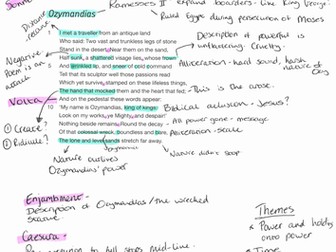 Ramesses II expand boarders - like King Uruqy
Ozymandias
Ruled Egypt during prosecution of Moses
Distant
I met a traveller from an antique land
Who said: Two vast and trunkless legs of stone
Description of powerful is
Stand in the desert. Near them on the sand,
unflattering cruelty.
Negative
Half sunk, a shattered visage lies, whose frown
Poem is an
And wrinkled lip, and sneer of cold command
Alliteration - hard sound, harsh
Tell that its sculptor well those passions read
nature of
Which yet survive, stamped on these lifeless things,
The hand that mocked them and the heart that fed;
This is the
VOLTA
And on the pedestal these words appear:
"My name is Ozymandias, king of kings:
Biblical allusion - Jesus?
① Create?
Look on my works, ye Mighty, and despair!"
All power gone - message
② Ridicule?
Nothing beside remains. Round the decay
Of that colossal wreck, boundless and bare,
Alliteration - scale
The lone and level sands stretch far away.
Nature outlives
Ozymandias' power
Nature didn't stop
Enjambment
Description of Ozymandias/the wrecked
statue
Themes
* Power and
Caesura
onto power
to full stops mid-line
* Time